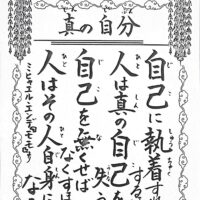 真の自分
自己に執着す
する
人は真の自己を
失
自己を無くせば
なくすほ
人はその人自身に
な
ミヒャエル・エンデ